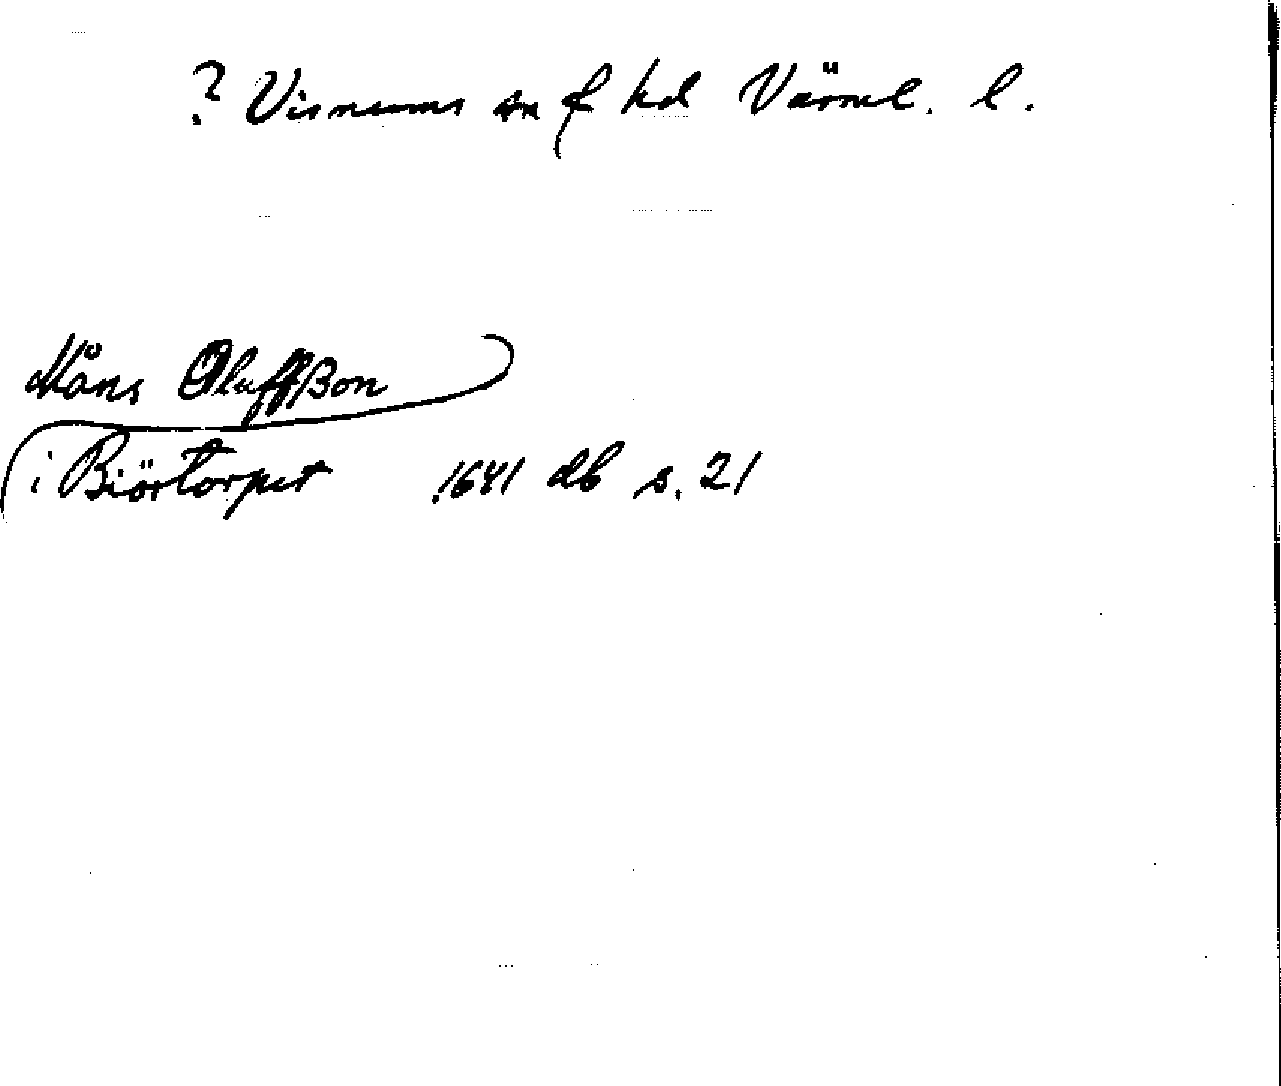 ? Visnums sn f hd Värml. l.
Måns Oluffßon
i Biörtorpet 1641 db s. 21